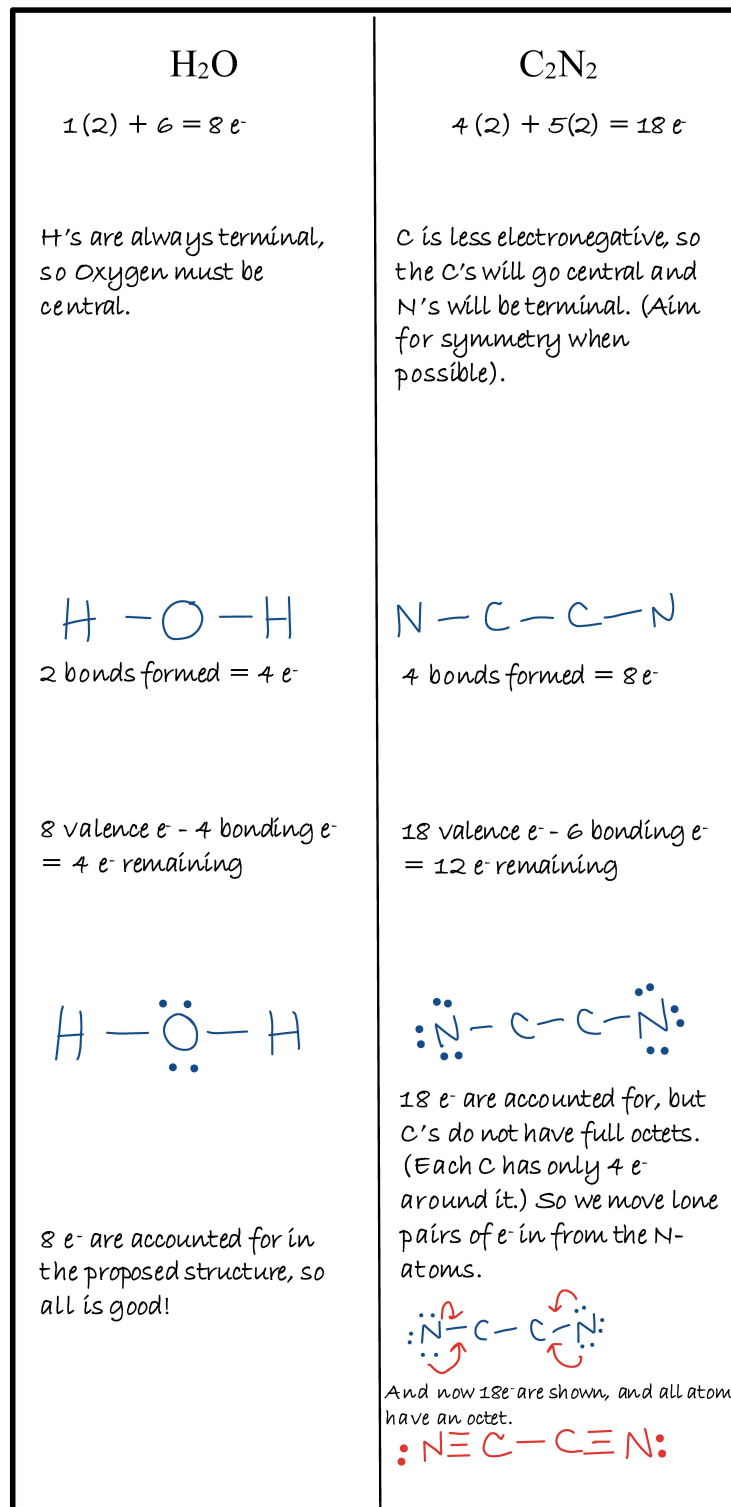 H₂O
1(2) + 6 = 8 e⁻
H's are always terminal,
so Oxygen must be
central.
H – O – H
2 bonds formed = 4 e⁻
8 valence e⁻ - 4 bonding e⁻
= 4 e⁻ remaining
H – O – H
8 e⁻ are accounted for in
the proposed structure, so
all is good!
C₂N₂
4(2) + 5(2) = 18 e⁻
C is less electronegative, so
the C's will go central and
N's will be terminal. (Aim
for symmetry when
possible).
N – C – C – N
4 bonds formed = 8 e⁻
18 valence e⁻ - 6 bonding e⁻
= 12 e⁻ remaining
N – C – C – N
18 e⁻ are accounted for, but
C's do not have full octets.
(Each C has only 4 e⁻
around it.) So we move lone
pairs of e⁻ in from the N-
atoms.
:N – C – C – N:
And now 18e⁻ are shown, and all atom
have an octet.
:N≡C – C≡N: